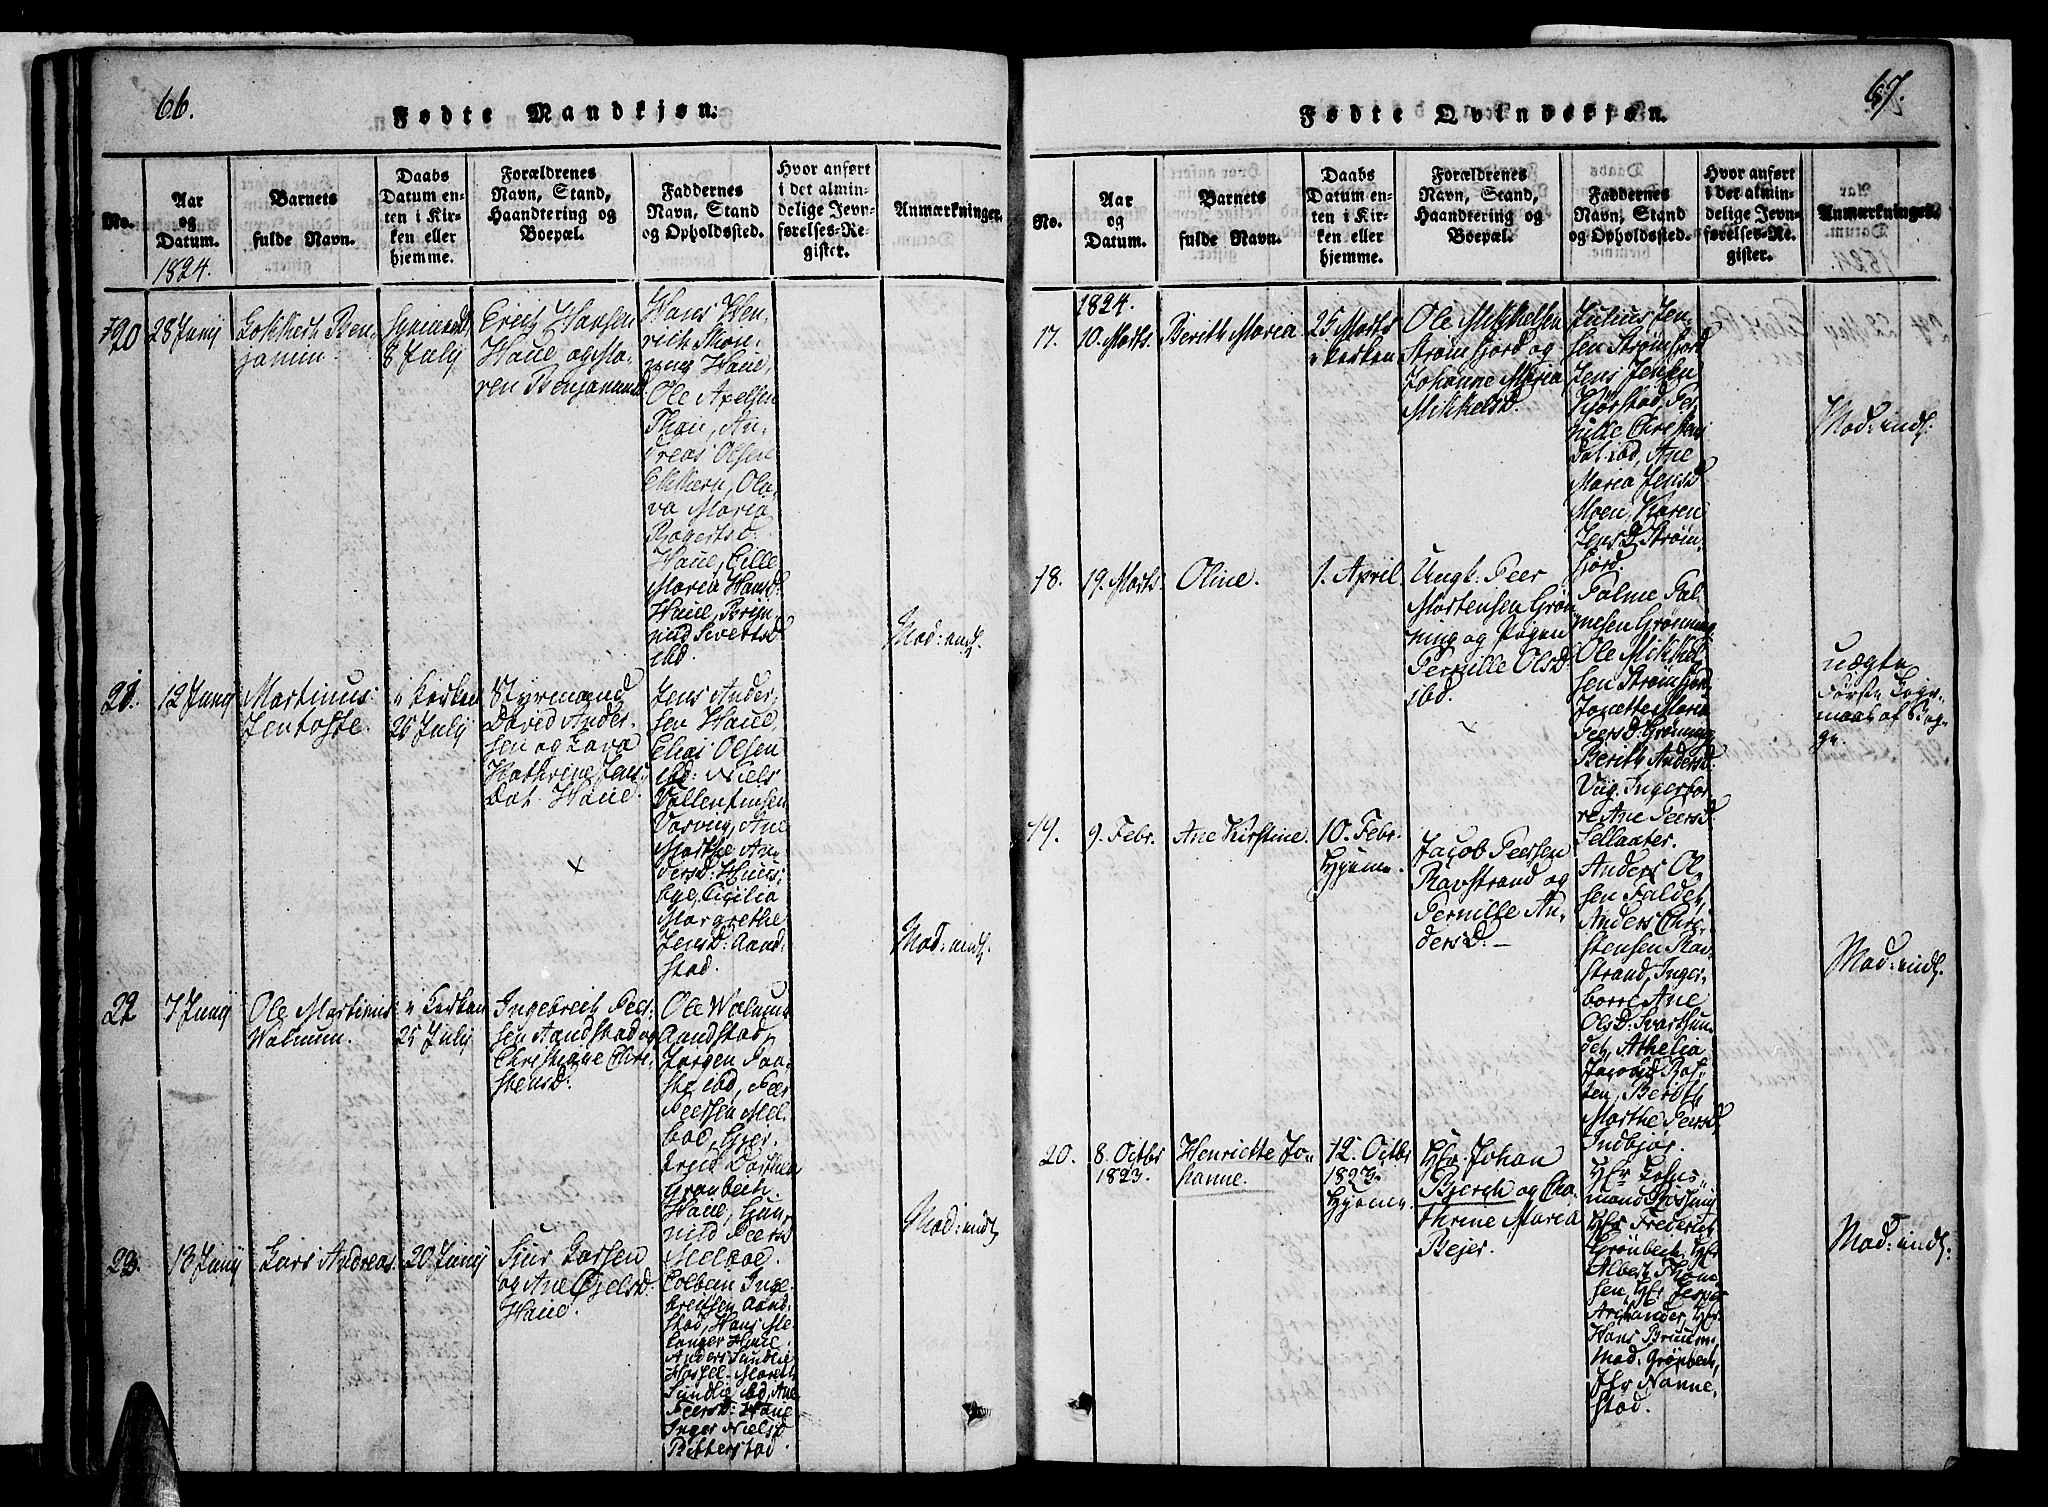 66.
Fødte Mandkjøn.
No.
Aar
og
Datum.
1824.
Barnets
fulde Navn.
Daabs
Datum en-
ten i Kir-
ken eller
hjemme.
Forældrenes
Navn, Stand,
Haandtering og
Boepæl.
Faddernes
Navn, Stand
og Opholdssted.
Hvor anført
i det almin-
delige Jevn-
førelses-Re-
gister.
Anmærkninger.
20
28 Junij
Gothard Ben-
jamin
hjemmed.
8 July
Erich Hansen
Haue og Ma-
ren Benjamins d
Hans Hen-
rich
Haue,
Ole Axelsen
An-
dreas Olsen
Ola-
va Maria
Haue, Cille
Maria Hansd:
Haue,
Sivertsd
ibd.
Mad: indl.
21.
12 Junij
Martinus
Jentofte.
i Kirken
26 July
Styrmand
David Ander-
sen og Lava
Kathrine Jens
Dat. Haue.
Jens Ander-
sen Haue,
Elias Olsen
ibd: Niels
Vallentinsen
Ane
Marthe An-
dersd:
Cicilia
Margrethe
Jensd: Aand-
stad.
Mad: indl.
22
7 Junij
Ole Martinus
Walnum.
i Kirken
25 July
Ingebreth Peer-
sen Aandstad og
Christiane Chri-
stensd:
Ole Walnum
Aandstad,
Jørgen Faa-
ste ibd, Peer
Peersen Mel-
boe,
Dorthea
Grønbech
Haue, Gun-
nild Peersd
Melboe.
Mad: indl
23.
13 Junij
Lars Andreas
20 Junij
Siur Larsen
og Ane Ojelsd
Haue.
Colban Inge-
brigtsen Aand-
stad, Hans Me-
langer Haue
Anders Sundlie
Hassel. Mareth
Sundlie ibd, Ane
Peersd: Haue
Inger Nielsd
Bitterstad.
67.
Fødte Qvindekjøn.
No.
Aar
og
Datum.
Barnets
fulde Navn.
Daabs
Datum en-
ten i Kir-
ken eller
hjemme.
Forældrenes
Navn, Stand,
Haandtering og
Boepæl.
Faddernes
Navn, Stand
og Opholdssted.
Hvor anført
i det almin-
delige Jevn-
førelses-Re-
gister.
Anmærkninger.
1824.
17.
10. Marts.
Berith Maria
25 Marts
i Kirken
Ole Mikkelsen
Strømfjord og
Johanne Maria
Mikkelsd.
Julius Jen-
sen Strømfjord
Jens Jensen
Kjørstad, Per-
nille Christens
Dat ibd, Ane
Maria Jensd
Moen, Karen
Jensd Strøm-
fjord.
Mad: indl:
18.
19. Marts.
Oline.
1. April
Ungk: Peer
Mortensen Grøn-
ning og Pigen
Pernille Olsd
ibd.
Palme Pal-
mesen Grønning
Ole Mikkel-
sen Strømfjord,
Jonette Maria
Peersd Grønning
Berith Andersd:
Viig. Ingerbor-
re Ane Peersd
Sellaater.
uægte
første Leier-
maal af Beg-
ge.
19.
9. Febr.
Ane Kirstine.
10. Febr.
Hjemme
Jacob Peersen
Ravstrand og
Pernille An-
dersd. –
Anders Ol-
sen Faldet,
Anders Chri-
stensen Rav-
strand, Inger-
borre Ane
Olsd: Svartsun-
det, Athelia
Jacobsd
Berith
Marthe Peersd,
Indbjør.
Mad: indl.
20.
8. Octbr
1823.
Henriette Jo-
hanne.
12. Octbr
1823.
Hjemme
Hr. Johan
Bergh og Cha-
thrine Maria
Bejer.
Hr Fohns-
mand
Hr Frederich
Grønbech, Hr
Albert Thom-
sen, Hr Jesper
Arctander, Hr.
Hans Bruun
Mad: Grønbech,
Jfr Nanne-
stad.
Mad: indl: